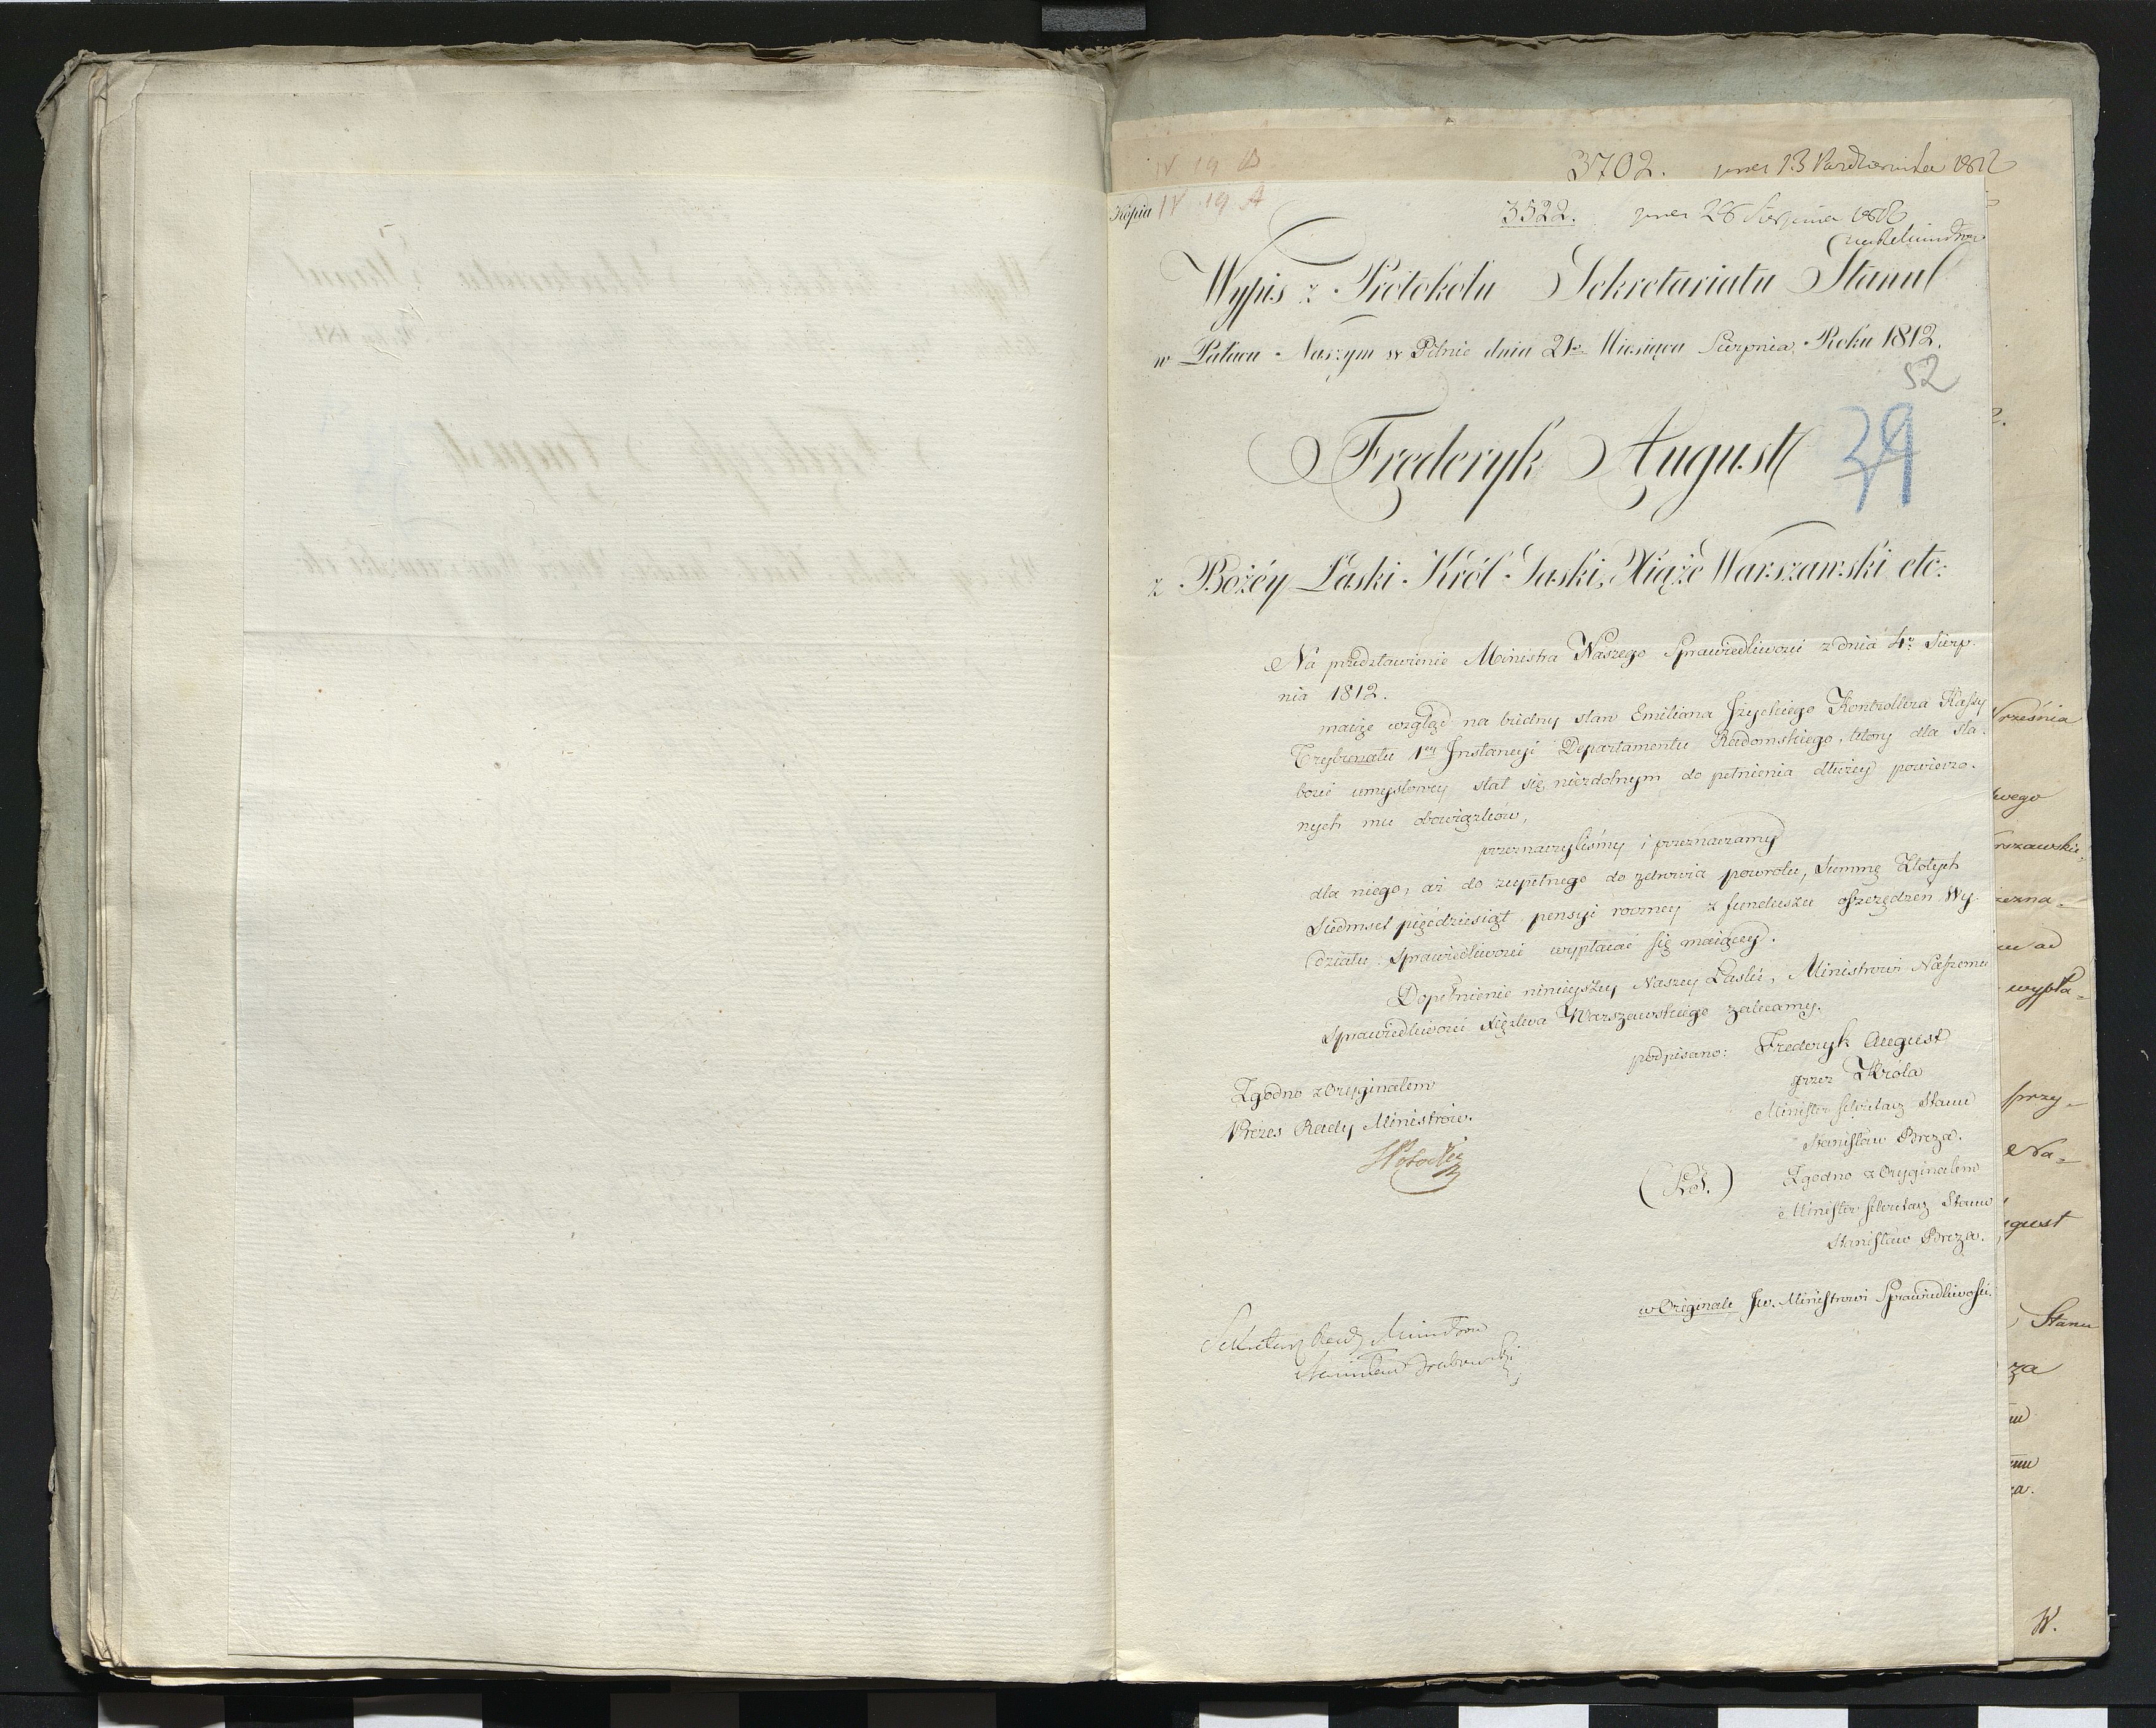 IV 19 B
3702. prez 13 Października 1812
Kopia IV 19 A
3522. prez 28 Sierpnia 1812
Wypis z Protokółu Sekretariatu Stanu
w Pałacu Naszym w Pilnic dnia 21go Miesiąca Sierpnia Roku 1812.
52
39
Frederyk August
z Bożéy Łaski Król Saski, Xiążę Warszawski etc:
Na przedstawienie Ministra Naszego Sprawiedliwości z dnia 4o Sierp.
nia 1812.
maiąc wzgląd na biedny stan Emiliana Kontrollera Kassy
Trybunału 1ey Instancyi Departamentu Radomskiego, który dla sła-
bości umysłowey stał się niezdolnym do pełnienia dłużey powierzo-
nych mu obowiązków,
przeznaczyliśmy i przeznaczamy
dla niego, aż do zupełnego do zdrowia powrotu, Summę Złotych
Siedmset pięćdziesiąt pensyi roczney z funduszu oszczędzeń Wy-
działu Sprawiedliwości wypłacać się maiącey.
Dopełnienie ninieyszey Naszey Łaski, Ministrowi Naszemu
Sprawiedliwości Xięstwa Warszawskiego zalecamy.
podpisano: Frederyk August
przez Króla
Minister Sekretarz Stanu
Stanisław Breza.
Zgodno z Oryginałem
Prezes Rady Ministrów.
SPotocki
(L.S.)
Zgodno z Oryginałem
Minister Sekretarz Stanu
Stanisław Breza.
w Originale Jw. Ministrowi Sprawiedliwości.
Sekretarz Rady Ministrów
Stanisław Grabowski
Września
wego
rszawskie
zezna=
wypła=
przy=
Na=
gust
Stanu
za
W.